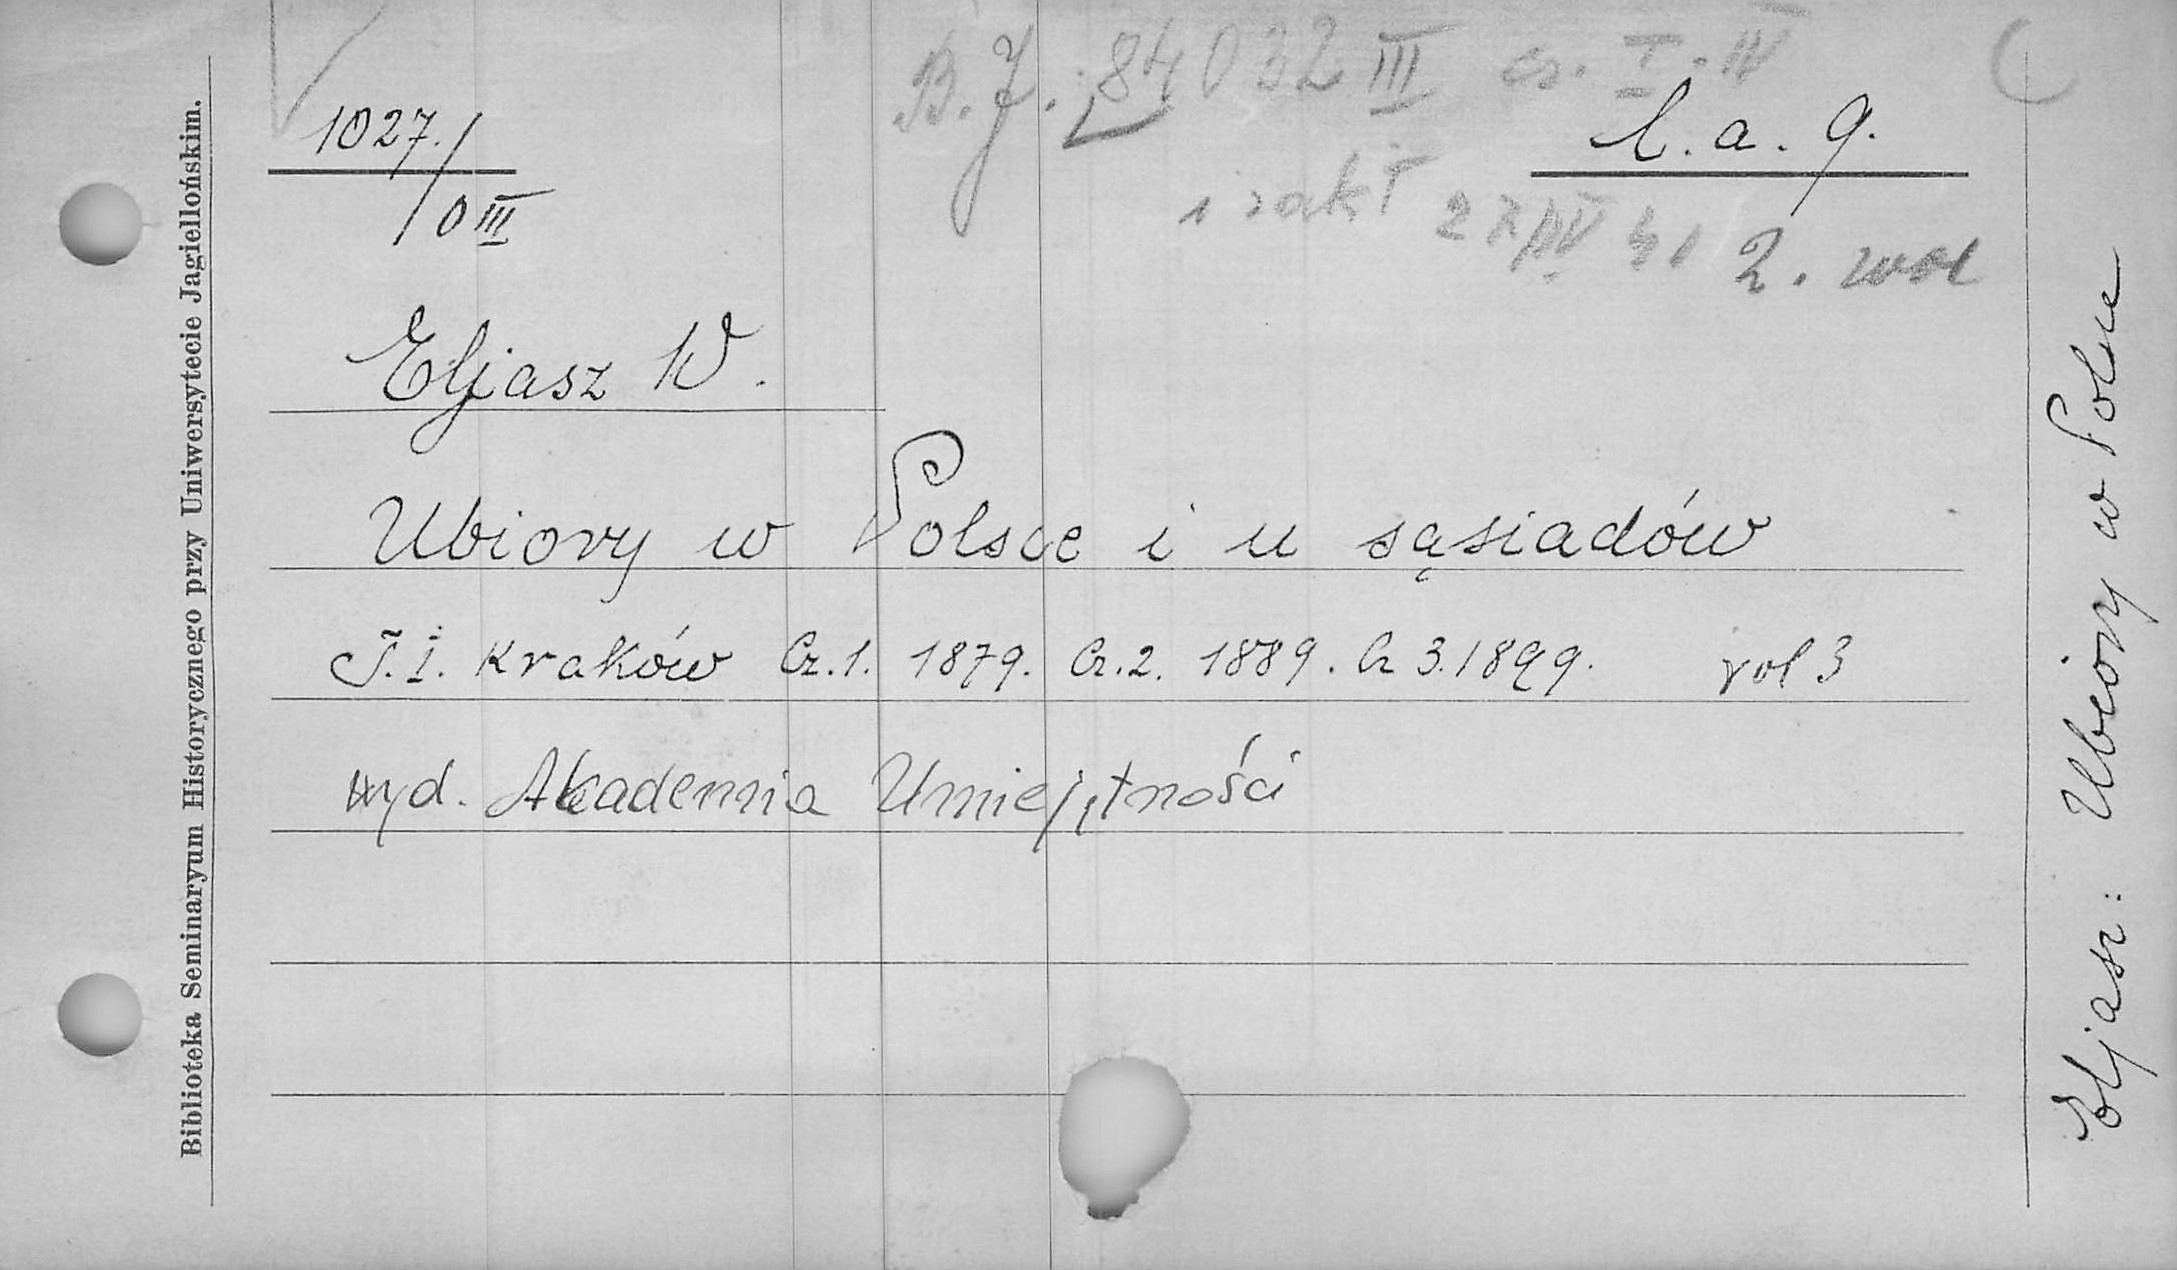 B. J. 84032 III cz. I. IV
1027./0 III
l. a. 9.
i zakł
2. wol
Eljasz W.
Ubiory w Polsce i u sąsiadów
T. I. Kraków Cz. 1. 1879. Cz. 2. 1889. Cz 3. 1899. vol 3
wyd. Akademia Umiejętności
Biblioteka Seminaryum Historycznego przy Uniwersytecie Jagiellońskim.
Eljasz: Ubiory w Polsce